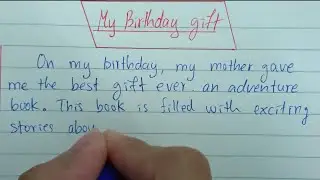 My Birthday gift
On my birthday, my mother gave
me the best gift ever an adventure
book. This book is filled with exciting
stories abou